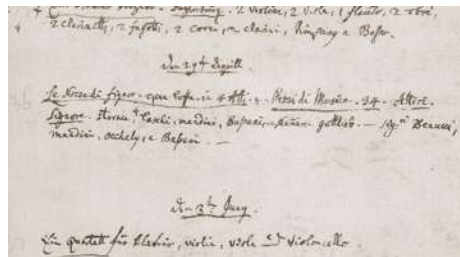 2 violini, 2 viole, 1 flauto, 2 oboe,
2 clarinetti, 2 fagotti, 2 corni, 2 clarini, Timpany e Baſso.
Den 29ten Aprill.
Le Nozze di figaro. opera buffa. in 4 Atti. Pezzi di Musica. 34. Attori.
Signore. Storace, Laschi, mandini, Buſsani, e gottlieb. — Sig:ri Benucci,
mandini, occhely, e Buſsani. —
den 3ten Juny.
Ein quartett für klavier, violin, viola und violoncello.